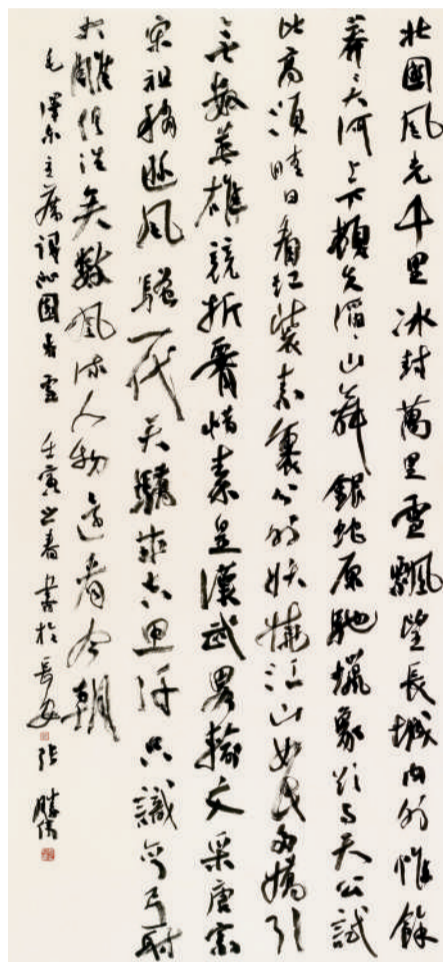 北國風光千里冰封萬里雪飄望長城內外惟餘
莽〻大河上下頓失滔〻山舞銀蛇原馳蠟象欲與天公試
比高須晴日看紅裝素裹分外妖嬈江山如此多嬌引
無數英雄競折腰惜秦皇漢武略輸文采唐宗
宋祖稍遜風騷一代天驕成吉思汗只識彎弓射
大雕俱往矣數風流人物還看今朝
毛澤東主席詞沁園春雪 壬寅之春書於長安 張